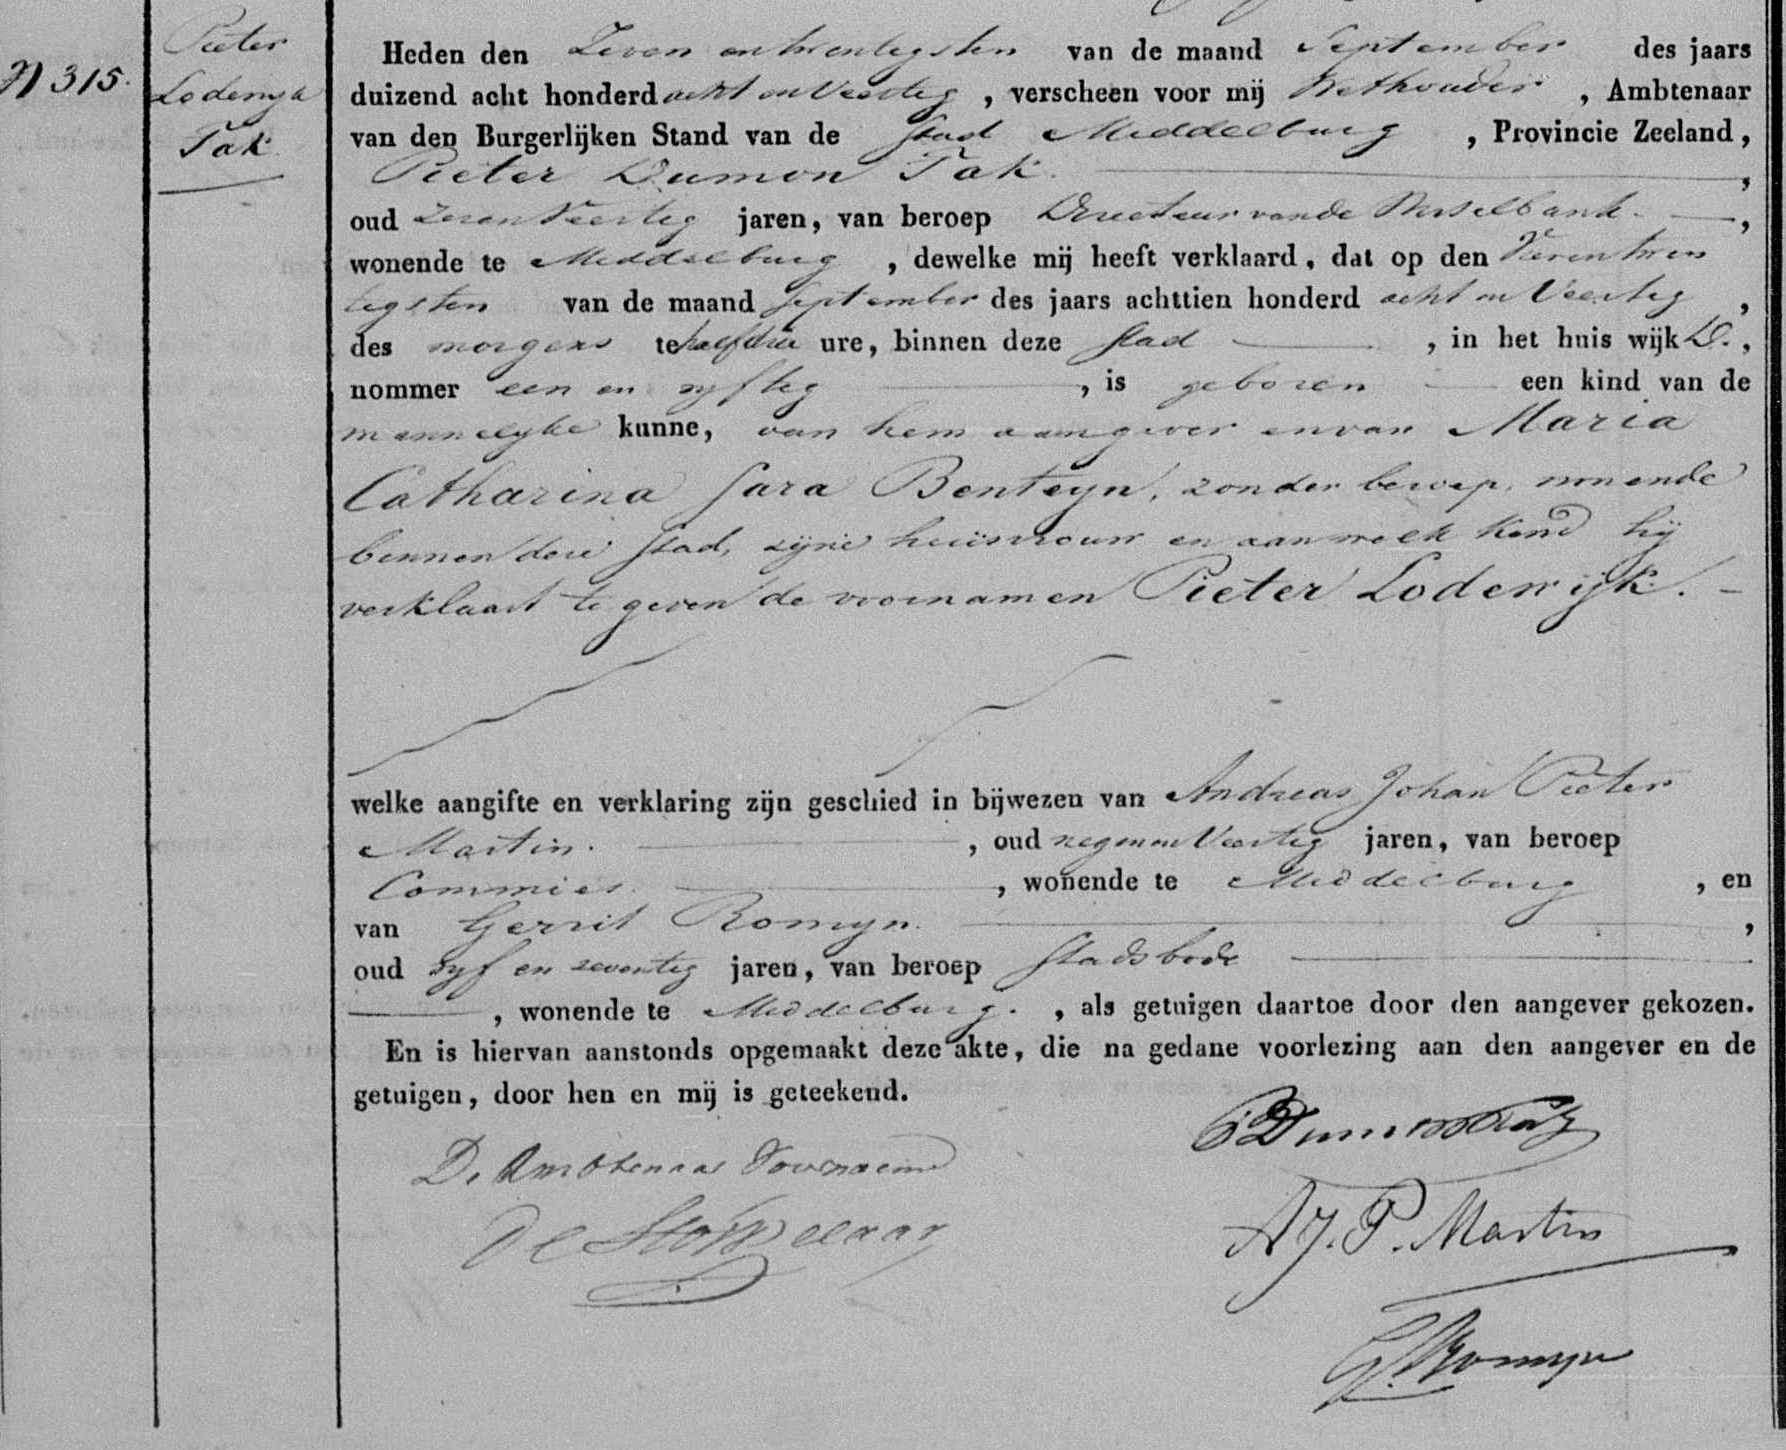 N 315.
Pieter
Lodewyk
Tak
Heden den Zeven en twentigsten van de maand September des jaars
duizend acht honderd acht en Veertig, verscheen voor mij Wethouder, Ambtenaar
van den Burgerlijken Stand van de stad Middelburg, Provincie Zeeland,
Pieter Dumon Tak.
oud zeven Veertig jaren, van beroep Directeur van de Wisselbank.
wonende te Middelburg, dewelke mij heeft verklaard, dat op den Vierentwen
tigsten van de maand September des jaars achttien honderd acht en Veertig,
des morgens te halfdrie ure, binnen deze stad, in het huis wijk D.,
nommer een en vyftig, is geboren een kind van de
mannelyke kunne, van hem aangever en van Maria
Catharina Sara Benteyn, zonder beroep, wonende
binnen deze stad, zijne huisvrouw en aan welk kind hij
verklaart te geven de voornamen Pieter Lodewijk.
welke aangifte en verklaring zijn geschied in bijwezen van Andreas Johan Pieter
Martin., oud negenen Veertig jaren, van beroep
Commies., wonende te Middelburg, en
van Gerrit Romyn.,
oud vyf en zeventig jaren, van beroep Stadsbode
, wonende te Middelburg., als getuigen daartoe door den aangever gekozen.
En is hiervan aanstonds opgemaakt deze akte, die na gedane voorlezing aan den aangever en de
getuigen, door hen en mij is geteekend.
P Dumon Tak
De Ambtenaar Voornoemd
A J. P. Martin
G. Romyn